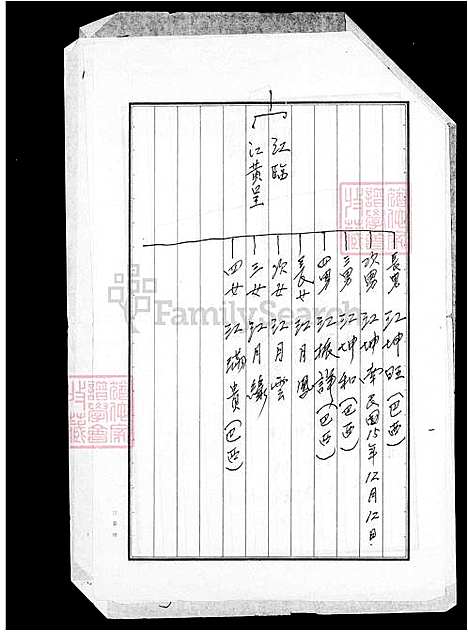 江臨
江黃呈
長男 江坤旺(巴西)
次男 江坤南 民國15年12月12日
三男 江坤和(巴西)
四男 江振譁(巴西)
長女 江月鳳
次女 江月雲
三女 江月
四女 江瑞貴(巴西)
FamilySearch